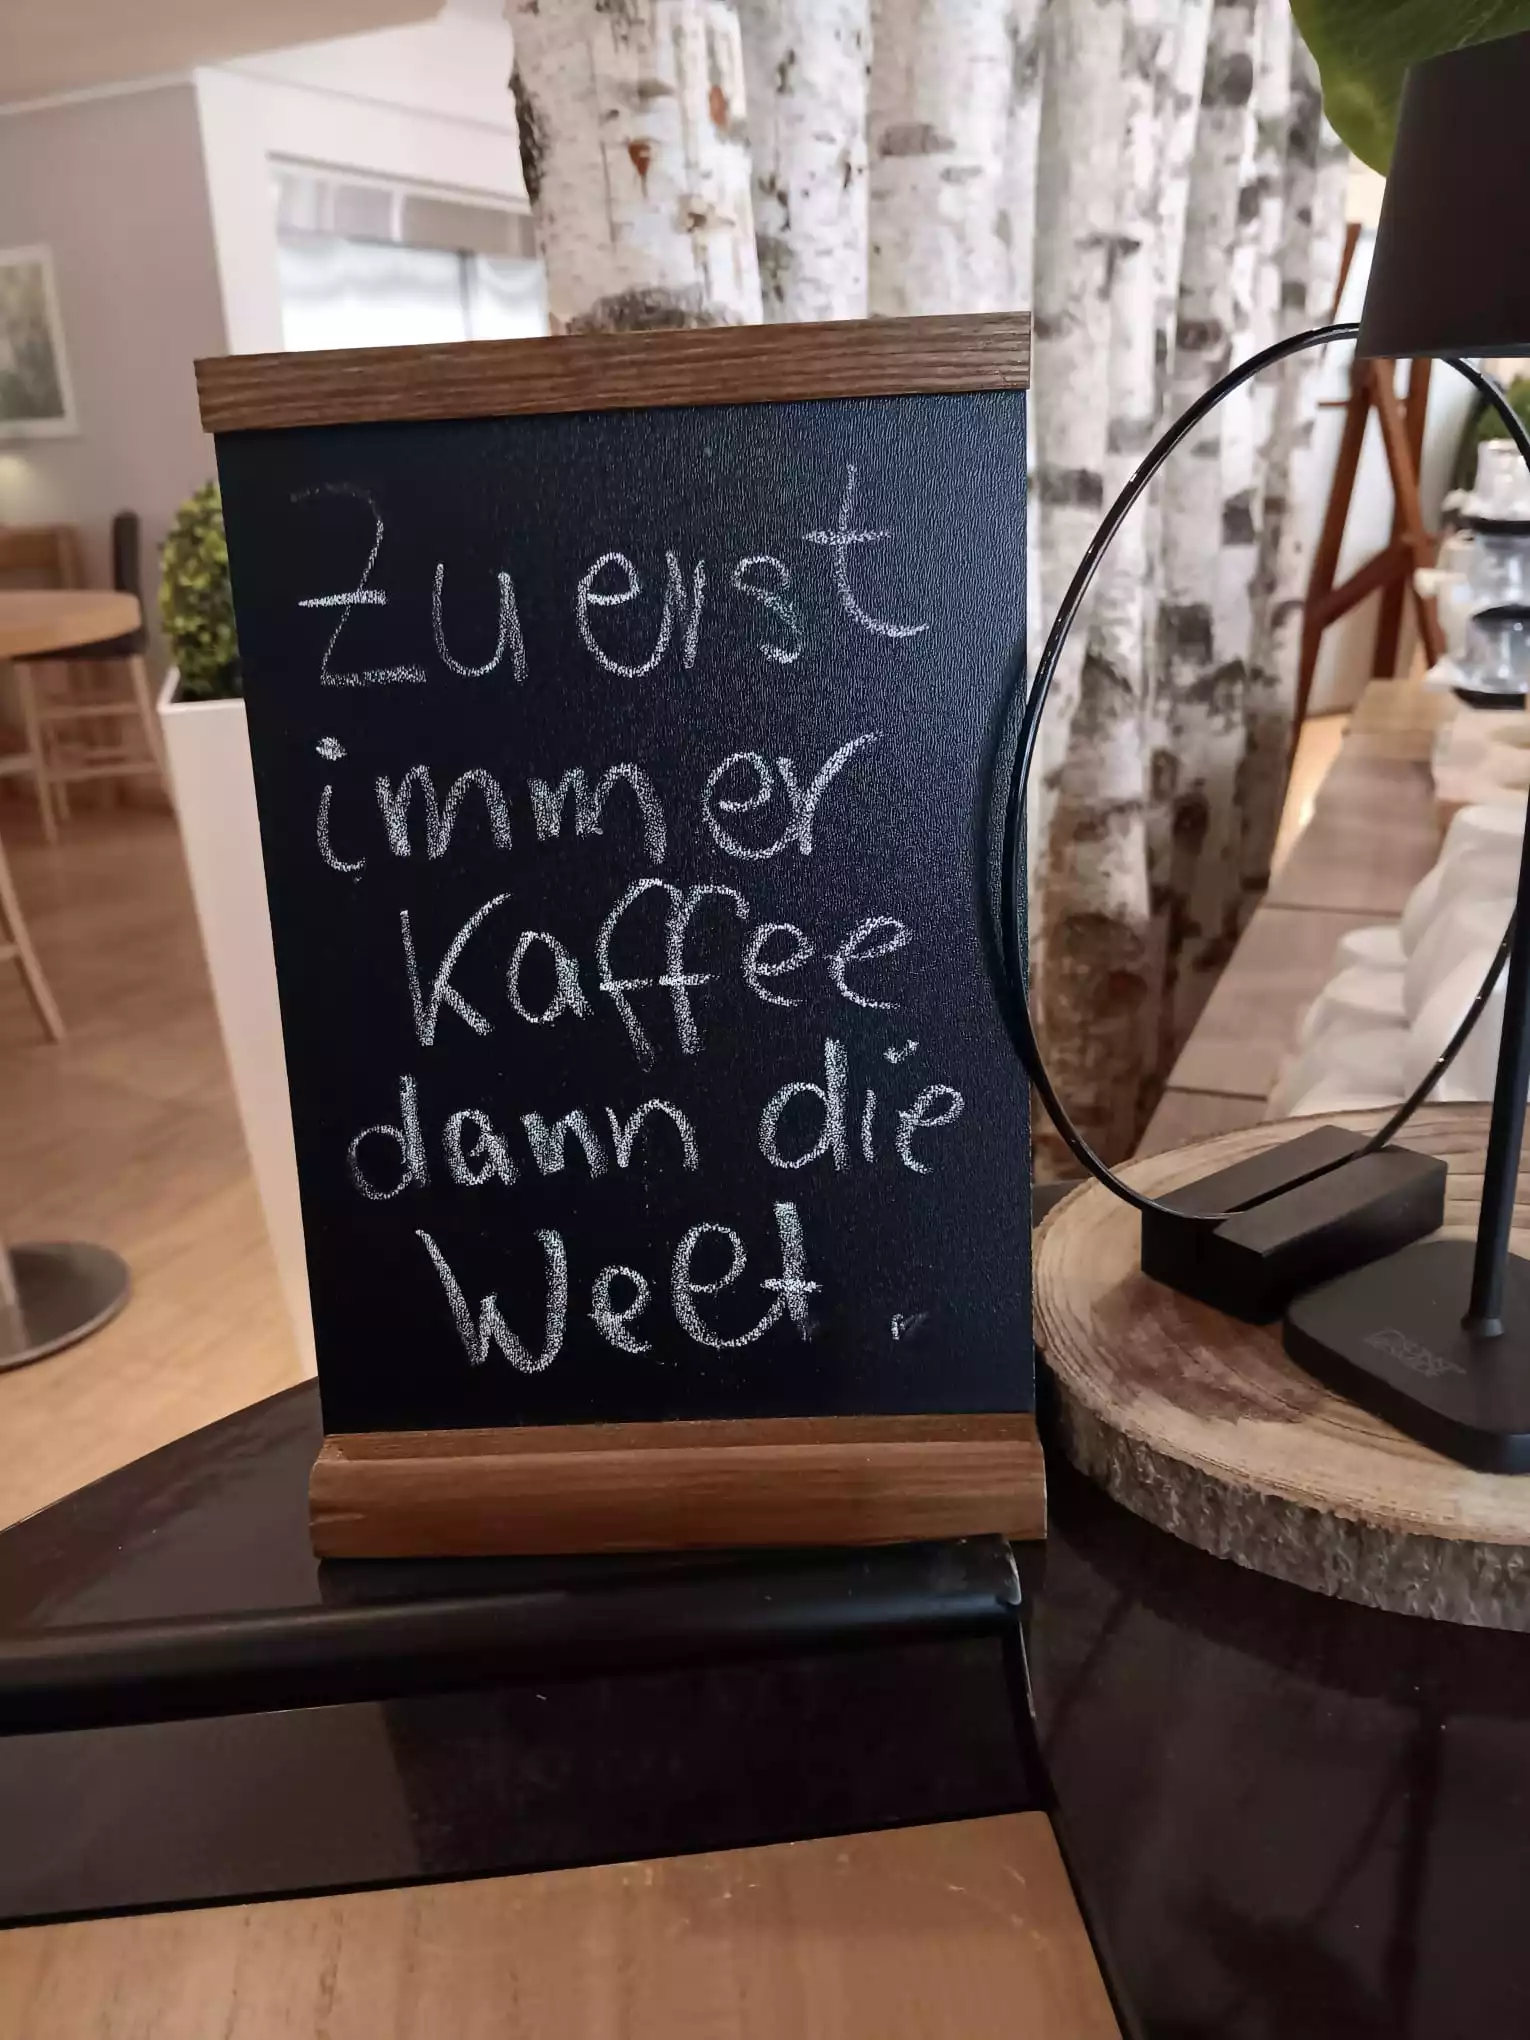 Zuerst
immer
Kaffee
dann die
Welt.